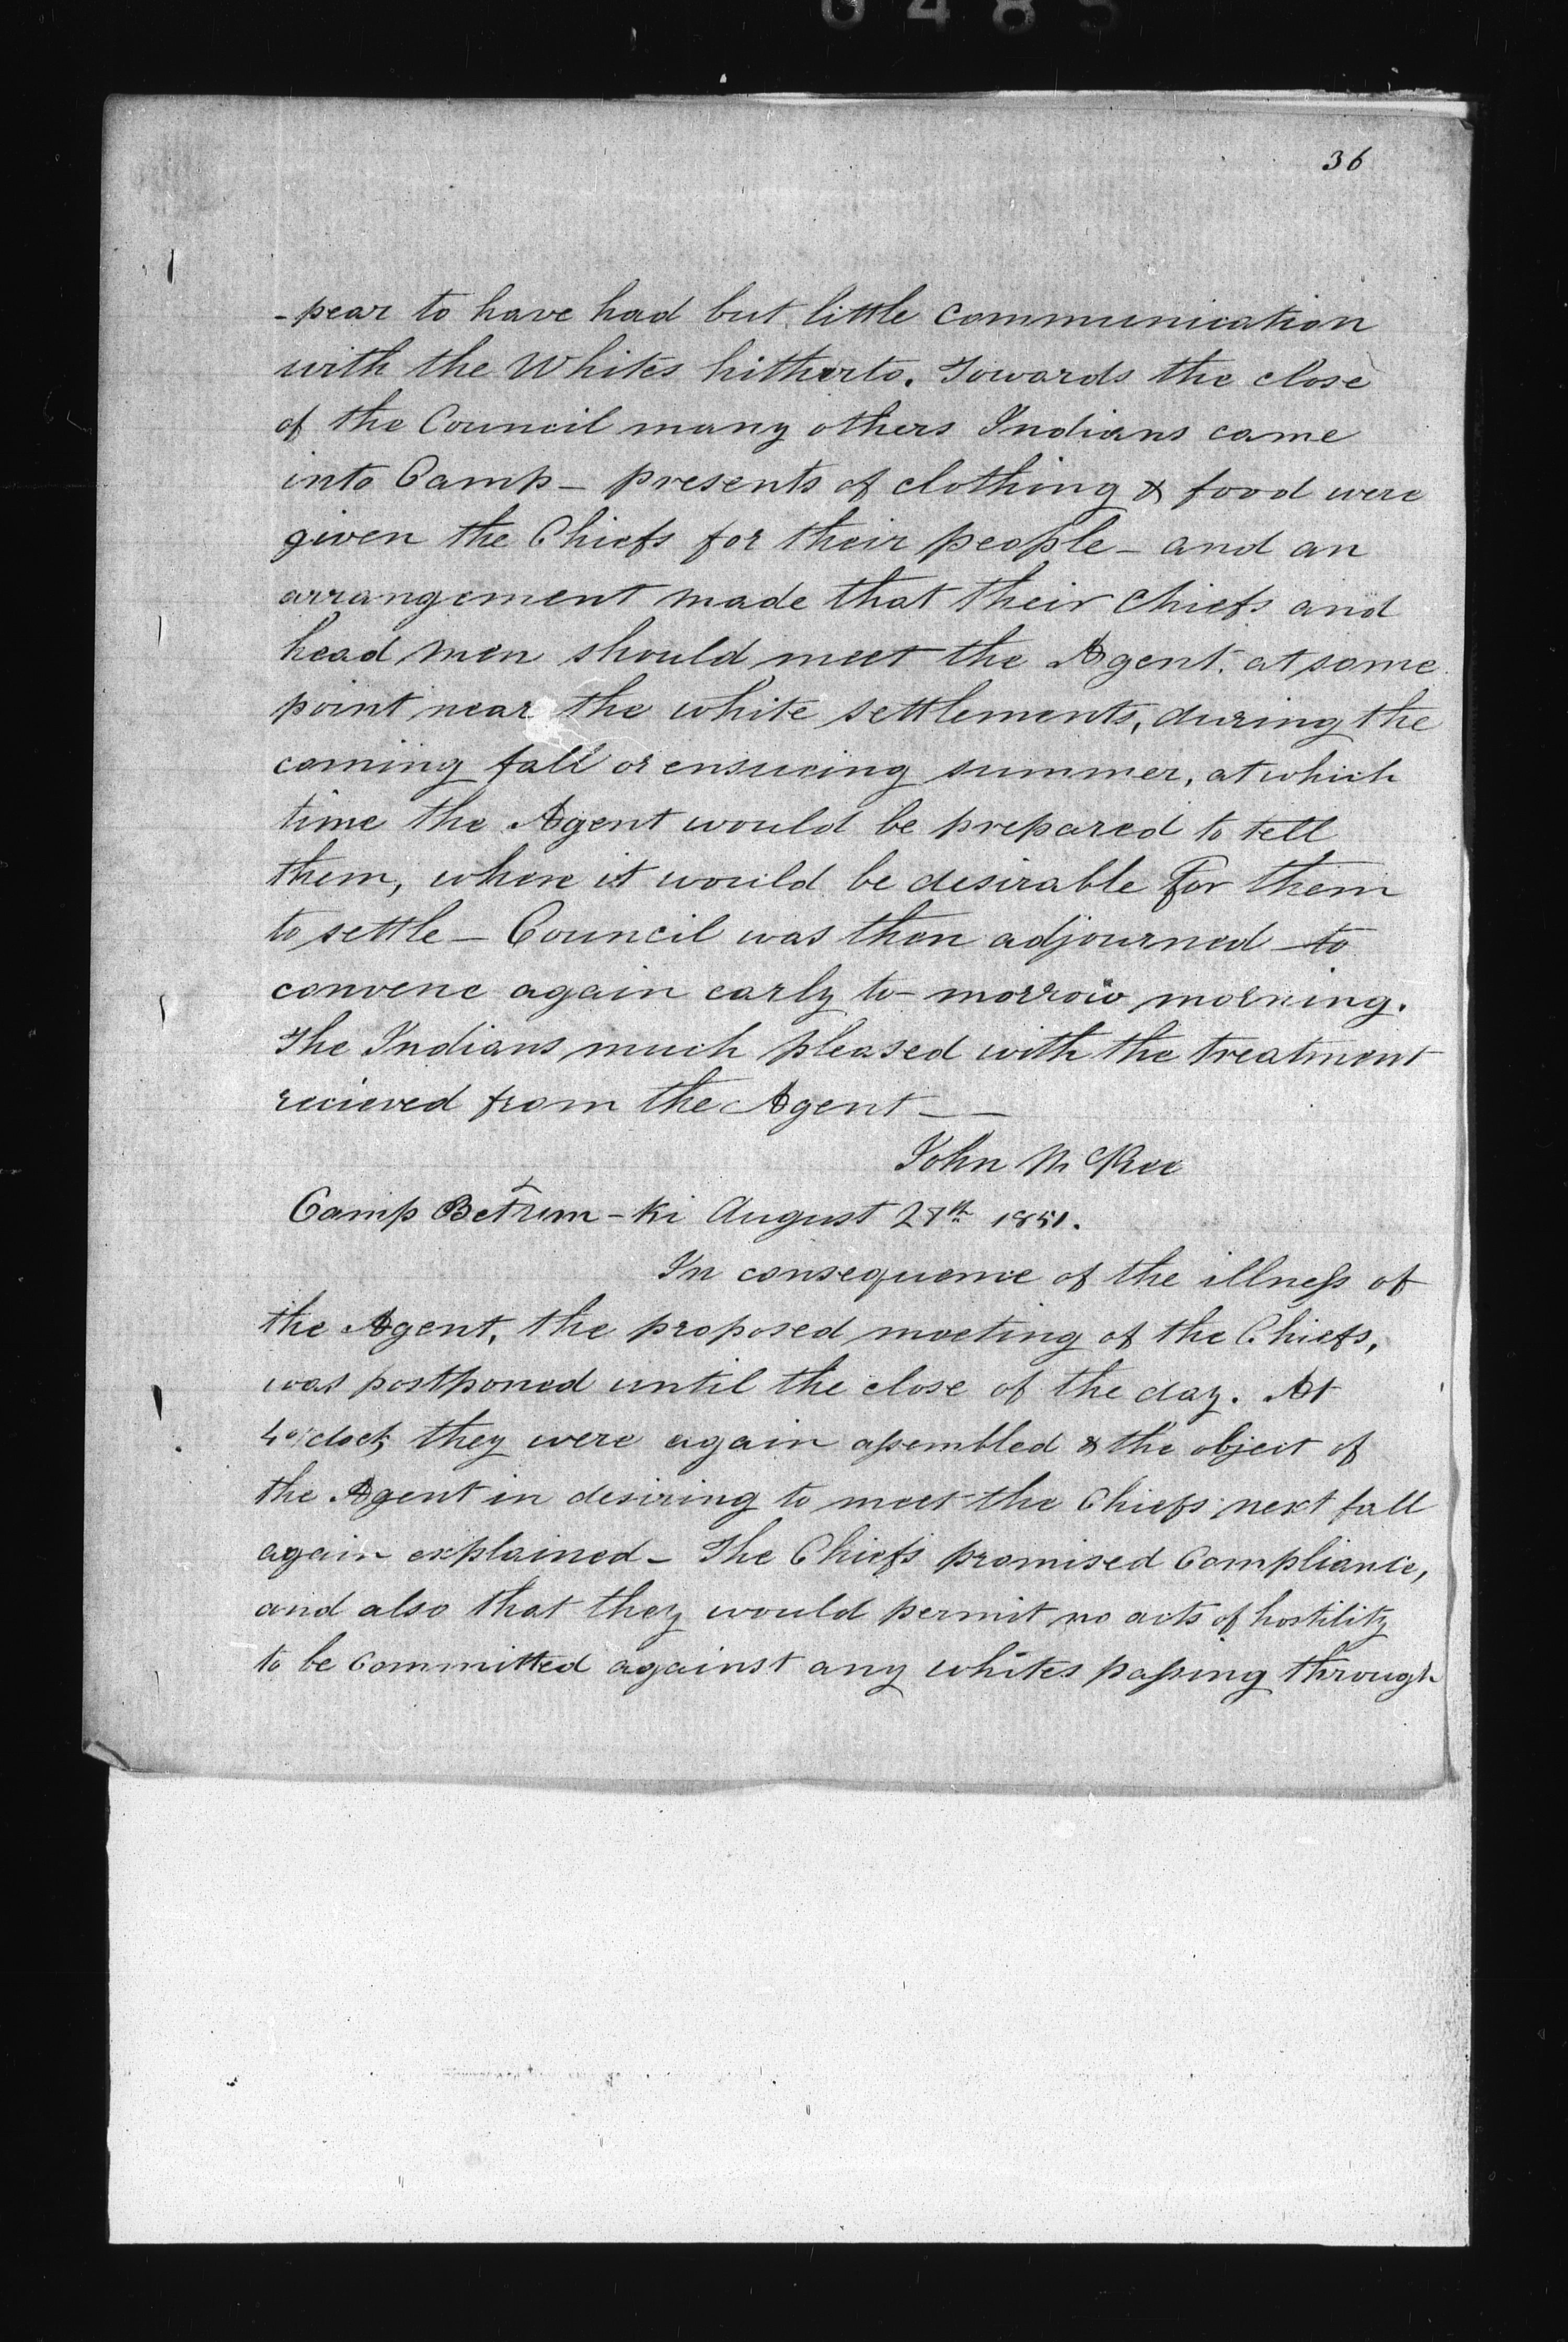 0485
36
-pear to have had but little communication
with the Whites hitherto. Towards the close
of the Council many others Indians came
into Camp - presents of clothing & food were
given the Chiefs for their people - and an
arrangement made that their Chiefs and
head men should meet the Agent at some
point near the white settlements, during the
coming fall or ensueing summer, at which
time the Agent would be prepared to tell
them, where it would be desirable for them
to settle - Council was then adjourned to
convene again early to-morrow morning.
The Indians much pleased with the treatment
recieved from the Agent - -
John McKee
Camp August 28th 1851.
In consequence of the illness of
the Agent, the proposed meeting of the Chiefs,
was postponed until the close of the day. At
4 o'clock they were again assembled & the object of
the Agent in desiring to meet the Chiefs next fall
again explained - The Chiefs promised Compliance,
and also that they would permit no acts of hostility
to be committed against any whites passing through